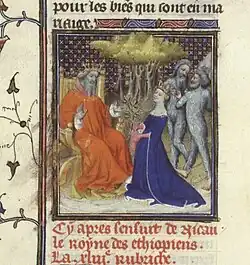 pour les biēs qui sont en ma
riaige.
Cy apres sensuit de Nicau
le royne des ethiopiens.
La .xliiie. rubriche.